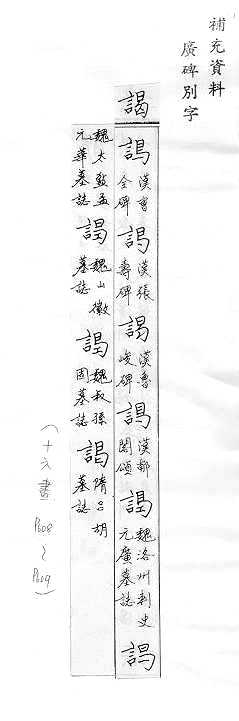 補充資料
廣碑別字
謁
謁漢曹全碑
謁漢張壽碑
謁漢魯峻碑
謁漢郙閣頌
謁魏洛州刺史元廣墓誌
謁
魏太監孟元華墓誌
謁魏山徽墓誌
謁魏叔孫固墓誌
謁隋呂胡墓誌
(十六畫 P608~P609)